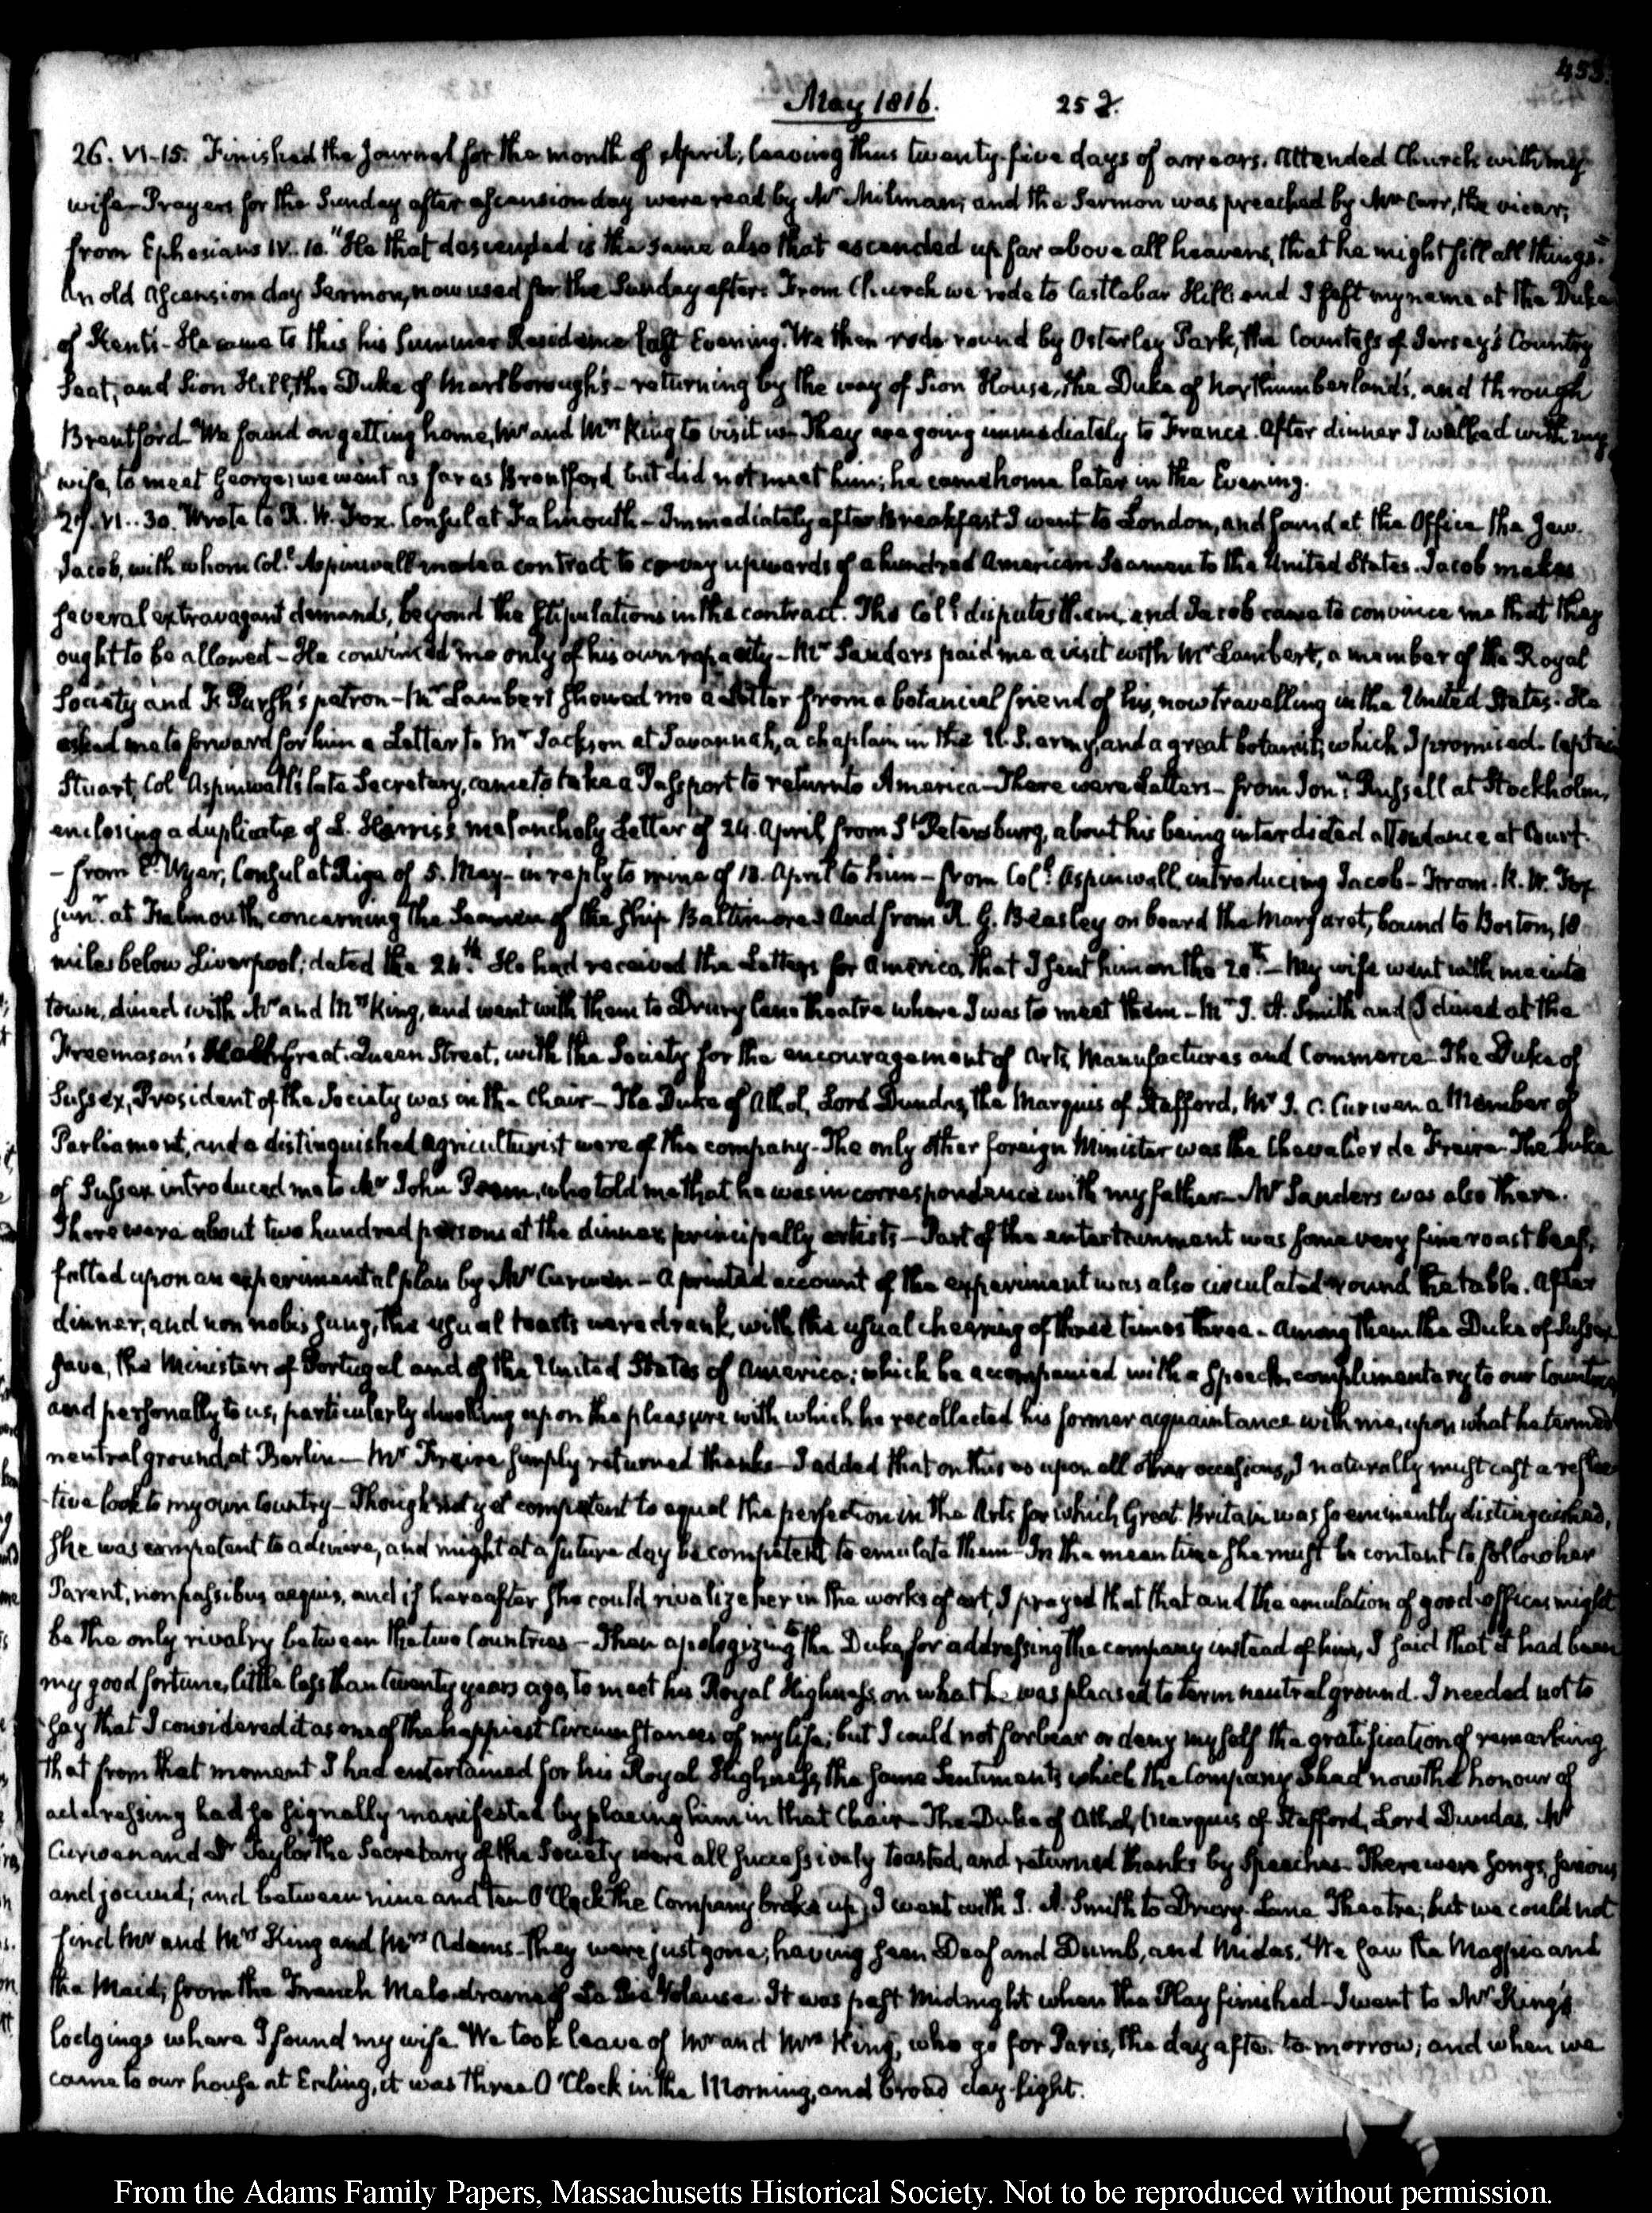 453.
May 1816. 252.
26. VI-15. Finished the Journal for the month of April; leaving thus twenty-five days of arrears. Attended Church with my
wife— Prayers for the Sunday after ascension day were read by Mr Milman; and the Sermon was preached by Mr Carr, the vicar,
from Ephesians IV. 10. "He that descended is the same also that ascended up far above all heavens, that he might fill all things."
An old Ascension day Sermon, now used for the Sunday after. From Church we rode to Castlebar Hill and I left my name at the Duke
of Kent's— He came to this his Summer Residence last Evening. We then rode round by Osterley Park, the Countess of Jersey's Country
Seat, and Sion Hill, the Duke of Marlborough's— returning by the way of Sion House, the Duke of Northumberland's, and through
Brentford— We found on getting home, Mr and Mrs King to visit us— They are going immediately to France. After dinner I walked with my
wife, to meet George; we went as far as Brentford but did not meet him; he came home later in the Evening.
27. VI..30. Wrote to R. W. Fox. Consul at Falmouth— Immediately after breakfast I went to London, and found at the Office the Jew.
Jacob, with whom Coll. Aspinwall made a contract to convey upwards of a hundred American Seamen to the United States. Jacob makes
several extravagant demands, beyond the stipulations in the contract. The Coll. disputes them, and Jacob came to convince me that they
ought to be allowed— He convinced me only of his own rapacity— Mr Sanders paid me a visit with Mr Lambert, a member of the Royal
Society and F. Pursh's patron— Mr Lambert showed me a Letter from a botanical friend of his, now travelling in the United States. He
asked me to forward for him a Letter to Mr Jackson at Savannah, a chaplain in the U.S. army, and a great botanist; which I promised. Captain
Stuart, Col. Aspinwall's late Secretary, came to take a Passport to return to America— There were Letters— from Jonn. Russell at Stockholm,
enclosing a duplicate of L. Harris's melancholy Letter of 24. April from St Petersburg, about his being interdicted attendance at Court.
— from E. Wyer, Consul at Riga of 5. May— in reply to mine of 18. April to him— from Coll. Aspinwall, introducing Jacob— From. R. W. Fox
junr. at Falmouth, concerning the Seamen of the ship Baltimore. And from R. G. Beasley on board the Margaret, bound to Boston, 18
miles below Liverpool; dated the 24th. He had received the Letters for America, that I sent him on the 20th— My wife went with me into
town, dined with Mr and Mrs King, and went with them to Drury Lane theatre where I was to meet them— Mr J. A. Smith and I dined at the
Freemason's Hall, Great Queen Street, with the Society for the encouragement of Arts, Manufactures and Commerce— The Duke of
Sussex, President of the Society was in the Chair— The Duke of Athol, Lord Dundas, the Marquis of Stafford, Mr J. C. Curwen a Member of
Parliament, and a distinguished agriculturist were of the company. The only other foreign Minister was the Chevalier de Freire— The Duke
of Sussex introduced me to Mr John, who told me that he was in correspondence with my father— Mr Sanders was also there.
There were about two hundred persons at the dinner, principally artists— Part of the entertainment was some very fine roast beef,
fatted upon an experimental plan by Mr Curwen— A printed account of the experiment was also circulated round the table. After
dinner, and non nobis sung, the usual toasts were drank, with the usual cheering of three times three— Among them the Duke of Sussex
gave, the Ministers of Portugal and of the United States of America; which he accompanied with a speech, complimentary to our Countries
and personally to us, particularly dwelling upon the pleasure with which he recollected his former acquaintance with me, upon what he termed
neutral ground, at Berlin— Mr Freire simply returned thanks— I added that on this as upon all other occasions, I naturally must cast a reflec-
-tive look to my own Country— Though not yet competent to equal the perfection in the Arts for which Great Britain was so eminently distinguished,
She was competent to admire, and might at a future day be competent to emulate them— In the mean time she must be content to follow her
Parent, non passibus aequis, and if hereafter she could rivalize her in the works of art, I prayed that that and the emulation of good offices might
be the only rivalry between the two Countries— Then apologizing to the Duke for addressing the company instead of him, I said that it had been
my good fortune, little less than twenty years ago, to meet his Royal Highness on what he was pleased to term neutral ground. I needed not to
say that I considered it as one of the happiest Circumstances of my life; but I could not forbear or deny myself the gratification of remarking
that from that moment I had entertained for his Royal Highness, the same Sentiments which the Company I had now the honour of
addressing had so signally manifested by placing him in that Chair— The Duke of Athol, Marquis of Stafford, Lord Dundas, Mr
Curwen and Dr Taylor the Secretary of the Society were all successively toasted, and returned thanks by Speeches— There were songs, serious
and jocund; and between nine and ten O'Clock the Company broke up. I went with J. A. Smith to Drury Lane Theatre; but we could not
find Mr and Mrs King and Mrs Adams— They were just gone; having seen Deaf and Dumb, and Midas. We saw the Magpie and
the Maid; from the French Melo-drame of La Pie Voleuse. It was past Midnight when the Play finished— I went to Mr King's
lodgings where I found my wife. We took leave of Mr and Mrs King, who go for Paris, the day after to-morrow; and when we
came to our house at Ealing, it was three O'Clock in the Morning, and broad day-light.
From the Adams Family Papers, Massachusetts Historical Society. Not to be reproduced without permission.